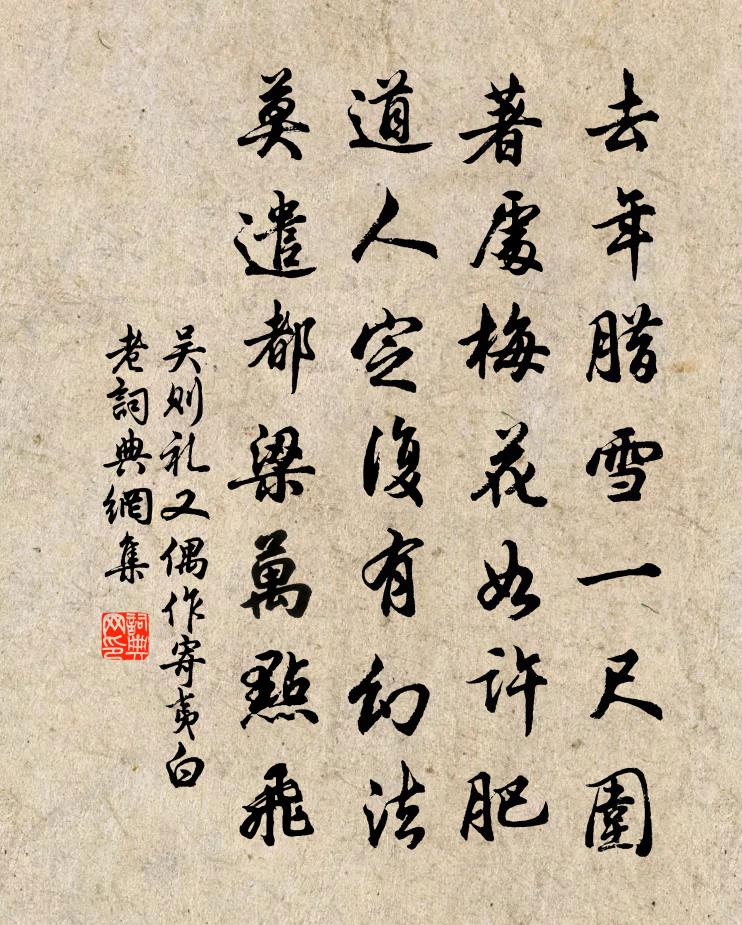 去年腊雪一尺圍
著處梅花如許肥
道人定復有幻法
莫遣都梁萬點飛
吴则礼又偶作寄夷白
老詞典網集
詞典网印